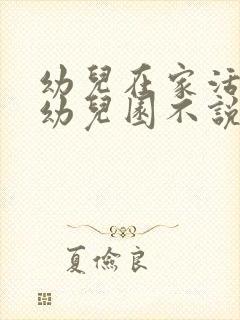 幼兒在家活
幼兒園不說
夏儉良